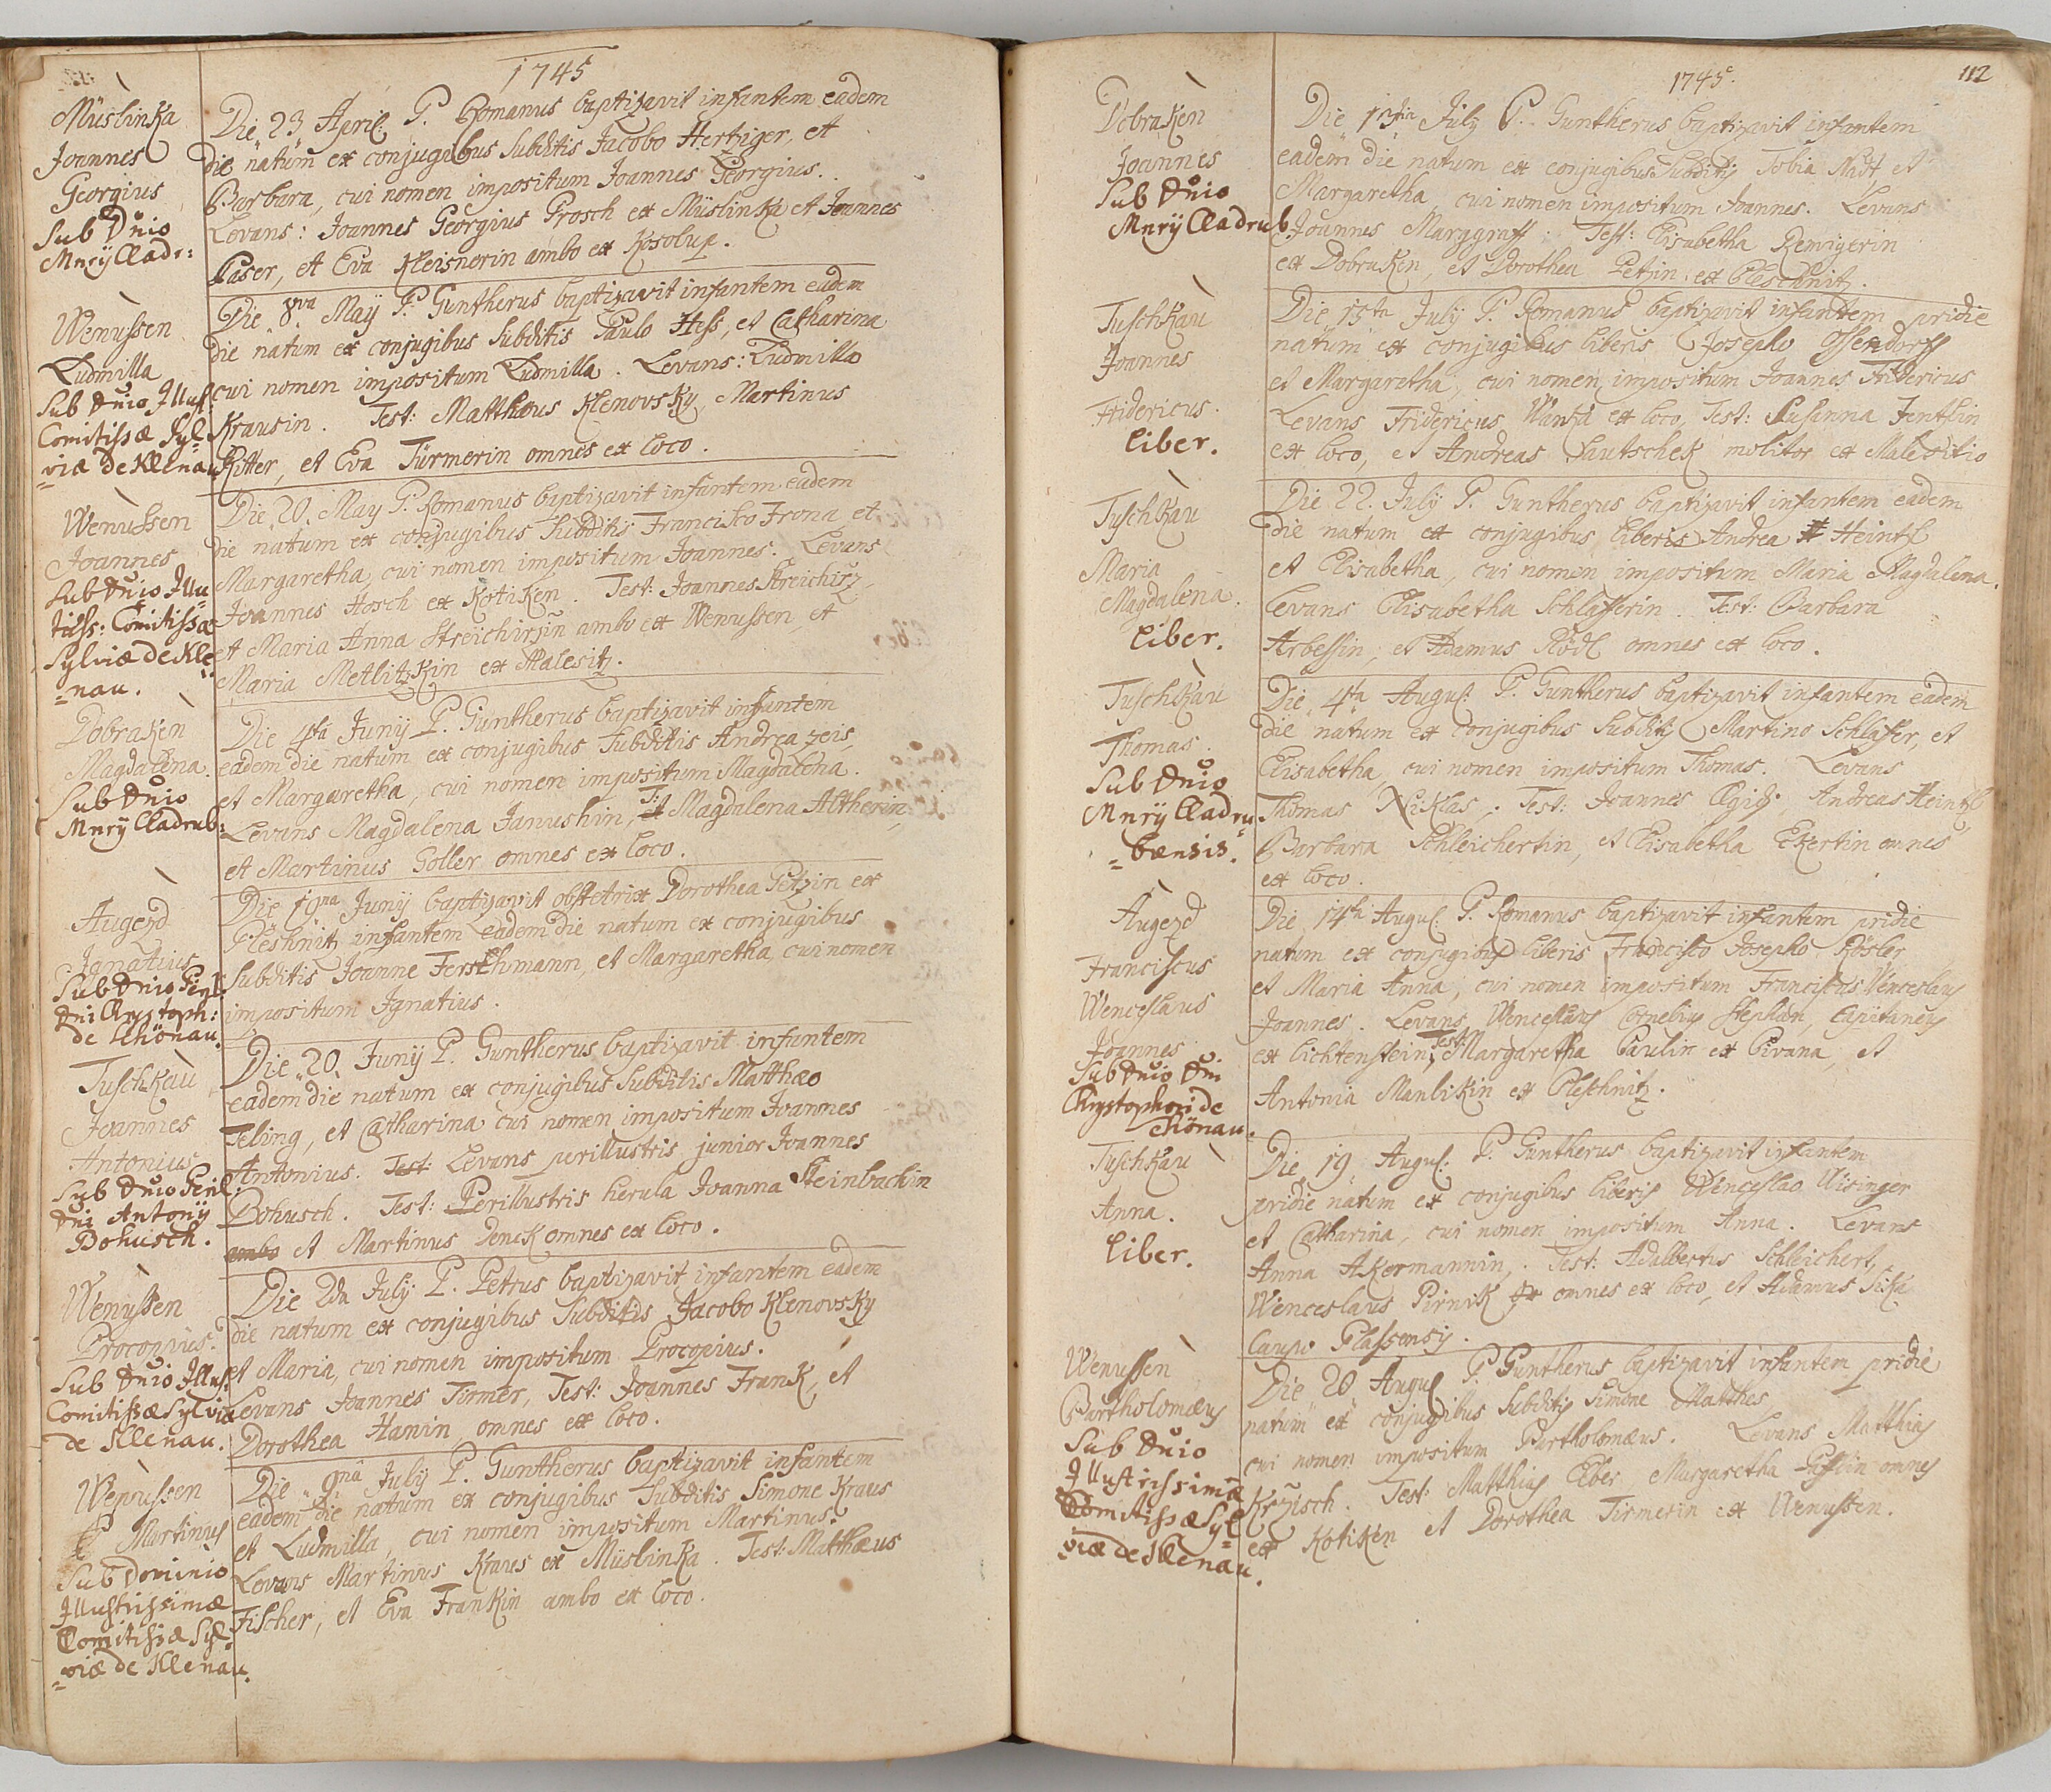 1745
Müslinka
Joannes
Georgius
Sub Dnio
Mnrÿ Cladr:
Die 23 April: P. Romanus baptizavit infantem eadem
die natum ex conjugibus Subditis Jacobo Hertziger, et
Barbara, cui nomen impositum Joannes Georgius.
Levans: Joannes Georgius Prosch ex Müslinka et Joannes
Paser, et Eva Kleisnerin ambo ex Kosolup.
Wenussen
Ludmilla
Sub Dnio Illus:
Comitissæ Syl=
viæ de Klenau
Die 8va Maÿ P. Guntherus baptizavit infantem eadem
die natum ex conjugibus Subditis Paulo Hess, et Catharina
cui nomen impositum Ludmilla. Levans: Ludmilla
Krausin. Test: Matthæus Klenovsky, Martinus
Ritter, et Eva Türmerin omnes ex loco.
Wenussen
Joannes
Sub Dnio Illu
triss: Comitissæ
Sylviæ de Kle
=nau.
Die 20. May P. Romanus baptizavit infantem eadem
die natum ex conjugibus Subditis Francisco Frona, et
Margaretha, cui nomen impositum Joannes. Levans
Joannes Hosch ex Kotiken. Test: Joannes Streichirz,
et Maria Anna Streichirzin ambo ex Wenussen, et
Maria Metlitzkin ex Malesitz.
Dobraken
Magdalena.
Sub Dnio
Mnrÿ Cladrub:
Die 4ta Junÿ P. Guntherus baptizavit infantem
eadem die natum ex conjugibus Subditis Andrea Zeis,
et Margaretha, cui nomen impositum Magdalena.
Levans Magdalena Janushin, T: Magdalena Altherin,
et Martinus Goller omnes ex loco.
Augezd
Ignatius
Sub Dnio Peril:
Dni Chrystoph:
de Schönau.
Die 19na Junÿ baptizavit obstetrix Dorothea Petzin ex
Pleshnitz infantem eadem die natum ex conjugibus
Subditis Joanne Ferschmann, et Margaretha, cui nomen
impositum Ignatius.
Tuschkau
Joannes
Antonius
Sub Dnio Peril:
Dni Antonÿ
Bohusch.
Die 20. Junÿ P. Guntherus baptizavit infantem
eadem die natum ex conjugibus Subditis Matthæo
Teling, et Catharina cui nomen impositum Joannes
Antonius. Test: Levans perillustris junior Joannes
Bohusch. Test: Perillustris herula Joanna Steinbachin
ambo et Martinus Denck omnes ex loco.
Wenussen
Procopius.
Sub Dnio Illus:
Comitissæ Sylviæ
de Klenau.
Die 2da Julÿ P. Petrus baptizavit infantem eadem
die natum ex conjugibus Subditis Jacobo Klenovsky
et Maria, cui nomen impositum Procopius.
Levans Joannes Tirmer, Test: Joannes Frank, et
Dorothea Hanin omnes ex loco.
Wenussen
Martinus
Sub Dominio
Illustrissimæ
Comitissæ Syl=
=viæ de Klenau.
Die 9na Julÿ P. Guntherus baptizavit infantem
eadem die natum ex conjugibus Subditis Simone Kraus
et Ludmilla, cui nomen impositum Martinus.
Levans Martinus Kraus ex Müslinka. Test: Matthæus
Fischer, et Eva Frankin ambo ex loco.
1745. 112
Dobraken
Joannes
Sub Dnio
Mnrÿ Cladrub.
Die 13tia July P. Guntherus baptizavit infantem
eadem die natum ex conjugibus Subditis Tobia et
Margaretha, cui nomen impositum Joannes. Levans
Joannes Marggraff. Test: Elisabetha Remigerin
ex Dobraken, et Dorothea Petzin ex Pleschnitz.
Tuschkau
Joannes
Fridericus.
liber.
Die 15ta July P. Romanus baptizavit infantem pridie
natum ex conjugibus liberis Josepho Ossendorff
et Margaretha, cui nomen impositum Joannes Fridericus
Levans Fridericus ex loco, Test: Susanna Jentschin
ex loco, et Andreas Sautschek molitor ex Malesitio
Tuschkau
Maria
Magdalena.
liber.
Die 22. July P. Guntherus baptizavit infantem eadem
die natum ex conjugibus liberis Andrea Heintzl
et Elisabetha, cui nomen impositum Maria Magdalena.
Levans Elisabetha Schlafferin. Test: Barbara
Arbessin, et Adamus Rödl omnes ex loco.
Tuschkau
Thomas.
Sub Dnio
Mnrÿ Cladru
=bensis.
Die 4ta August: P. Guntherus baptizavit infantem eadem
die natum ex conjugibus Subditis Martino Schlafer, et
Elisabetha, cui nomen impositum Thomas. Levans
Thomas Niklas, Test: Joannes Andreas Heintzl
Barbara Schleichertin, et Elisabetha Ekertin omnes
ex loco.
Augezd
Franciscus
Wenceslaus
Joannes
Sub Dnio Dni
Chrystophori de
Schönau.
Die 14ta Augus: P. Romanus baptizavit infantem pridie
natum ex conjugibus liberis Francisco Josepho Rösler
et Maria Anna, cui nomen impositum Franciscus Wenceslaus
Joannes. Levans Wenceslaus Cornelius Stephan, Capitaneus
ex Lichtenstein, Test: Margaretha Paulin ex Pivana, et
Antonia Manlikin ex Pleschnitz.
Tuschkau
Anna.
liber.
Die 19 Augus: P. Guntherus baptizavit infantem
pridie natum ex conjugibus liberis Wenceslao Uisinger
et Catharina, cui nomen impositum Anna. Levans
Anna Akermannin, Test: Adalbertus Schleichert,
Wenceslaus Pirnik omnes ex loco, et Adamus Sika
Caupo Plassensis.
Wenussen
Bartholomæus
Sub Dnio
Illustrissimæ
Comitissæ Syl=
=viæ de Klenau.
Die 20 Augus: P. Guntherus baptizavit infantem pridie
natum ex conjugibus Subditis Simone Matthes,
cui nomen impositum Bartholomæus. Levans Matthias
Krzisch. Test: Matthias Elber Margaretha omnes
ex Kotiken et Dorothea Tirmerin ex Wenussen.